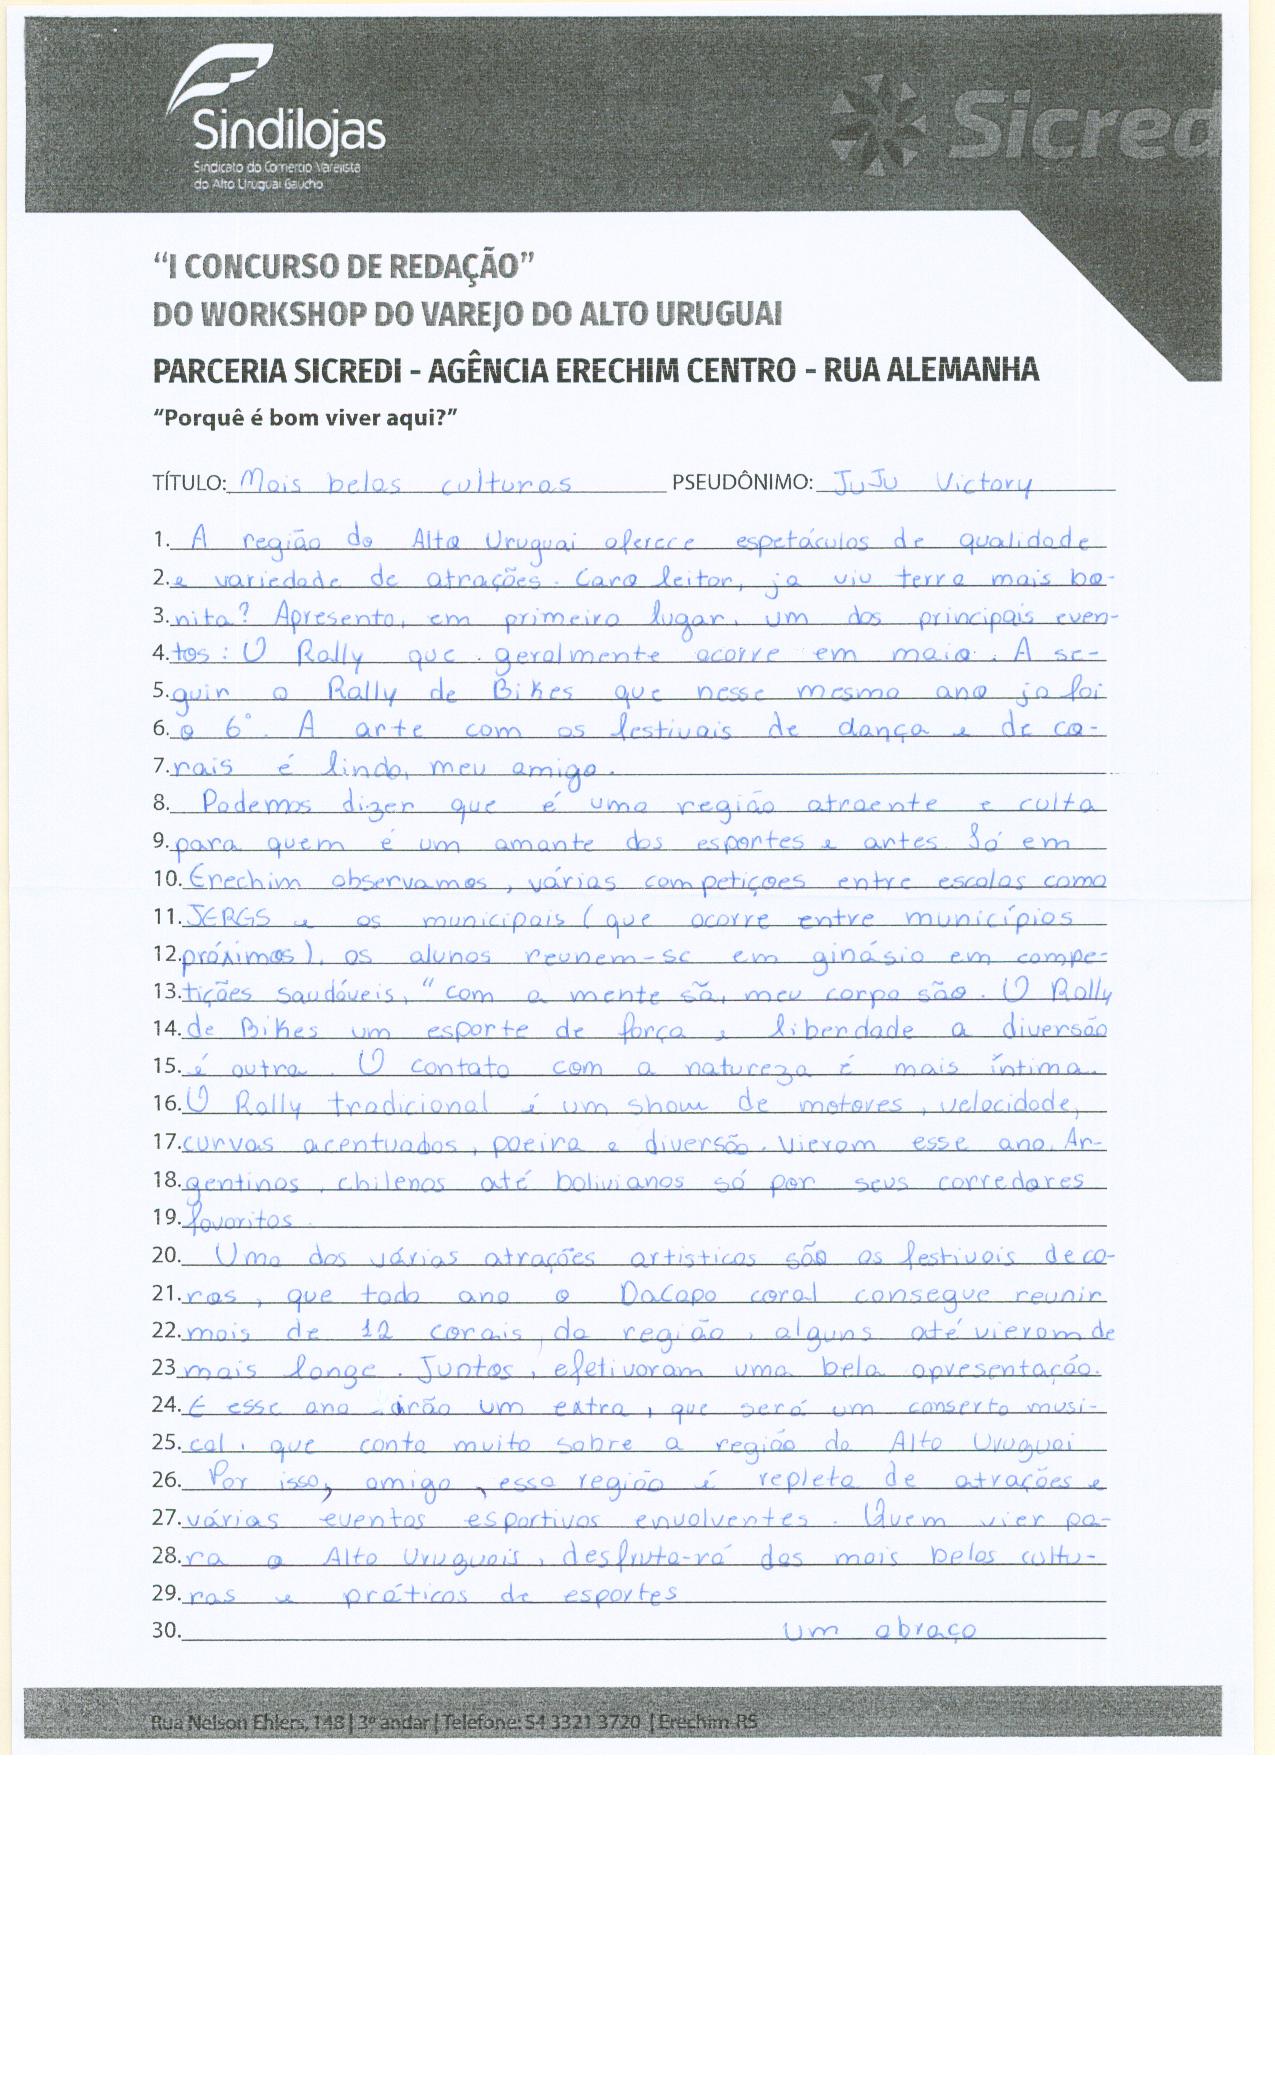 Sindilojas
Sindicato do Comércio Varejista
do Alto Uruguai Gaúcho
Sicred
“I CONCURSO DE REDAÇÃO”
DO WORKSHOP DO VAREJO DO ALTO URUGUAI
PARCERIA SICREDI - AGÊNCIA ERECHIM CENTRO - RUA ALEMANHA
“Porquê é bom viver aqui?”
TÍTULO: Mais belas culturas PSEUDÔNIMO: JuJu Victory
1. A região do Alto Uruguai oferece espetáculos de qualidade
2. e variedade de atrações. Caro leitor, ja viu terra mais bo-
3. nita? Apresento, em primeiro lugar, um dos principais even-
4. tos: O Rally que geralmente ocorre em maio. A se-
5. guir o Rally de Bikes que nesse mesmo ano ja foi
6. o 6°. A arte com os festivais de dança e de co-
7. rais é lindo, meu amigo.
8. Podemos dizer que é uma região atraente e culta
9. para quem é um amante dos esportes e artes. Só em
10. Erechim observamos, várias competiçoes entre escolas como
11. JERGS e os municipais (que ocorre entre municípios
12. próximos), os alunos reunem-se em ginásio em compe-
13. tições saudáveis, “com a mente sã, meu corpo são. O Rally
14. de Bikes um esporte de força e liberdade a diversão
15. é outra. O contato com a natureza é mais íntima.
16. O Rally tradicional é um show de motores, velocidade,
17. curvas acentuadas, poeira e diversão. Vieram esse ano, Ar-
18. gentinos, chilenos até bolivianos só por seus corredores
19. favoritos.
20. Uma das várias atrações artisticas são os festivais de co-
21. ras, que todo ano o DaCapo coral consegue reunir
22. mais de 12 corais da região, alguns até vieram de
23 mais longe. Juntos, efetivaram uma bela apresentação.
24. E esse ano irão um extra, que será um conserto musi-
25. cal, que conta muito sobre a região do Alto Uruguai
26. Por isso, amigo, essa região é repleta de atrações e
27. várias eventos esportivos envolventes. Quem vier pa-
28. ra o Alto Uruguais, desfruta-rá das mais belas cultu-
29. ras e práticas de esportes
30. um abraço
Rua Nelson Ehlers, 148 | 3º andar | Telefone: 54 3321 3720 | Erechim-RS